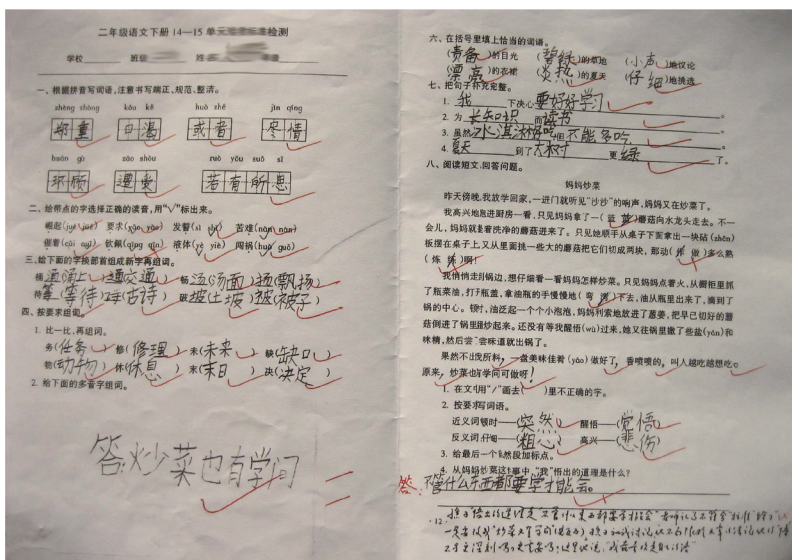 二年级语文下册14—15单元 检测
学校 班级 姓名
一、根据拼音写词语,注意书写端正、规范、整洁。
zhèng zhòng kǒu kě huò zhě jìn qíng
郑重 口渴 或者 尽情
huán gù zāo shòu ruò yǒu suǒ sī
环顾 遭受 若有所思
二、给带点的字选择正确的读音,用“√”标出来。
崛起(jué jué) 要求(yāo yào) 发誓( shì) 苦难(nàn nán)
钦佩(qīng qīn) 液体(yè yiè) 闯祸(huò guò)
三、给下面的字换部首组成新字再组词。
桶 涌(涌上) 通(交通) 畅 汤(汤面) 扬(飘扬)
待 等(等待) 诗(古诗) 破 坡(土坡) 被(被子)
四、按要求组句。
1. 比一比,再组词。
务(任务) 修(修理) 未(未来) 缺(缺口)
物(动物) 休(休息) 末(末日) 决(决定)
2. 给下面的多音字组词。
答:炒菜也有学问
六、在括号里填上恰当的词语。
(责备)的目光 (碧绿)的草地 (小声)地议论
(漂亮)的衣裙 (炎热)的夏天 (仔细)地挑选
七、把句子补充完整。
1. 我下决心要好好学习。
2. 为长知识而读书。
3. 虽然冰淇淋好吃,但不能多吃。
4. 夏天到了,大树更绿了。
八、阅读短文,回答问题。
妈妈炒菜
昨天傍晚,我放学回家,一进门就听见“沙沙”的响声,妈妈又在炒菜了。
我高兴地跑进厨房一看,只见妈妈拿了一(蓝 篮)蘑菇向水龙头走去。不一
会儿,妈妈就拿着洗净的蘑菇进来了。只见她顺手从桌子下面拿出一块砧(zhēn)
板摆在桌子上,又从里面挑一些大的蘑菇把它们切成两块,那动(作 做)多么熟
(炼 练)啊!
我悄悄走到锅边,想仔细看一看妈妈怎样炒菜。只见妈妈点着火,从橱柜里抓
了瓶菜油,打开瓶盖,拿油瓶的手慢慢地(弯 湾)下去,油从瓶里出来了,滴到了
锅的中心。顿时,油泛起一个个小泡泡,妈妈利索地放进了葱姜,把早已切好的蘑
菇倒进了锅里翻炒起来。还没有等我醒悟(wù)过来,她又往锅里撒了些盐(yán)和
味精,然后尝一尝味道就出锅了。
果然不出我所料,一盘美味佳肴(yáo)做好了,香喷喷的,叫人越吃越想吃。
原来,炒菜也有学问可做呀!
1. 在文中用“/”画去( )里不正确的字。
2. 按要求写词语。
近义词:顿时——(突然) 醒悟——(觉悟)
反义词:仔细——(粗心) 高兴——(悲伤)
3. 给最后一个自然段加标点。
4. 从妈妈炒菜这件事中,“我”悟出的道理是什么?
答:不管什么东西都要学才能会。